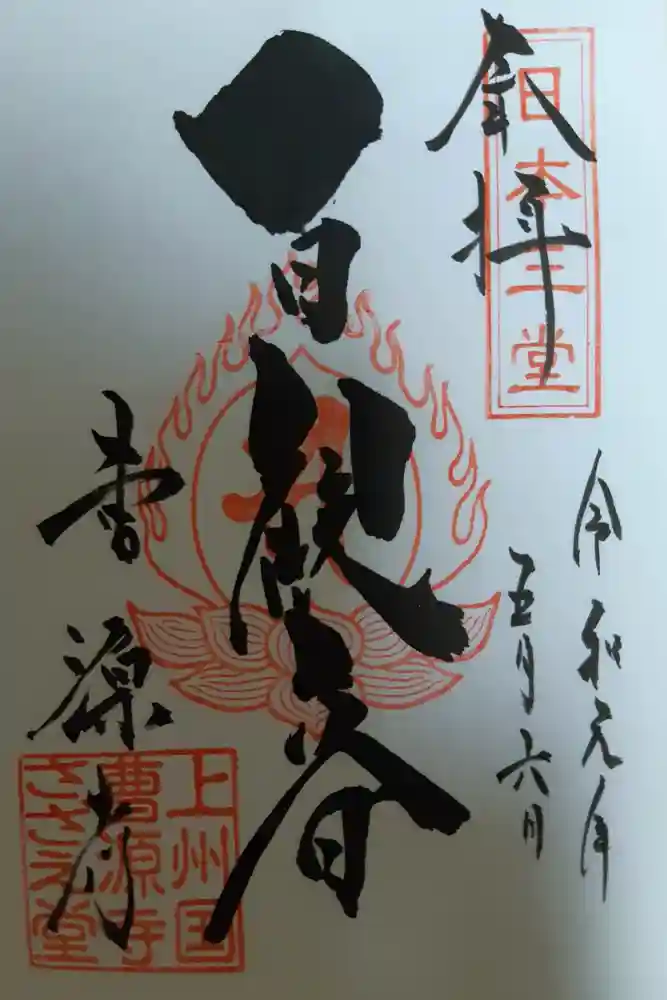 奉拝
日本三堂
令和元年
五月六日
百観音
曹源寺
上州国
曹源寺
さゞえ堂